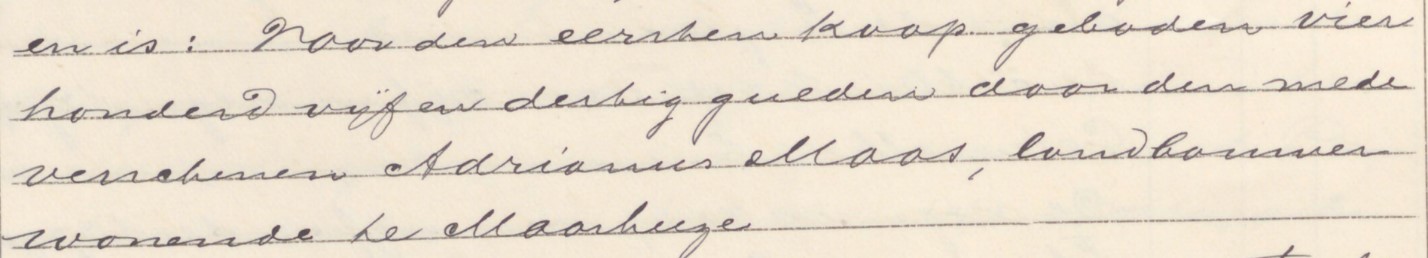 en is: Voor den eersten koop geboden vier
honderd vijf en dertig gulden door den mede
verschenen Adrianus Maas, landbouwer
wonende te Maarheeze